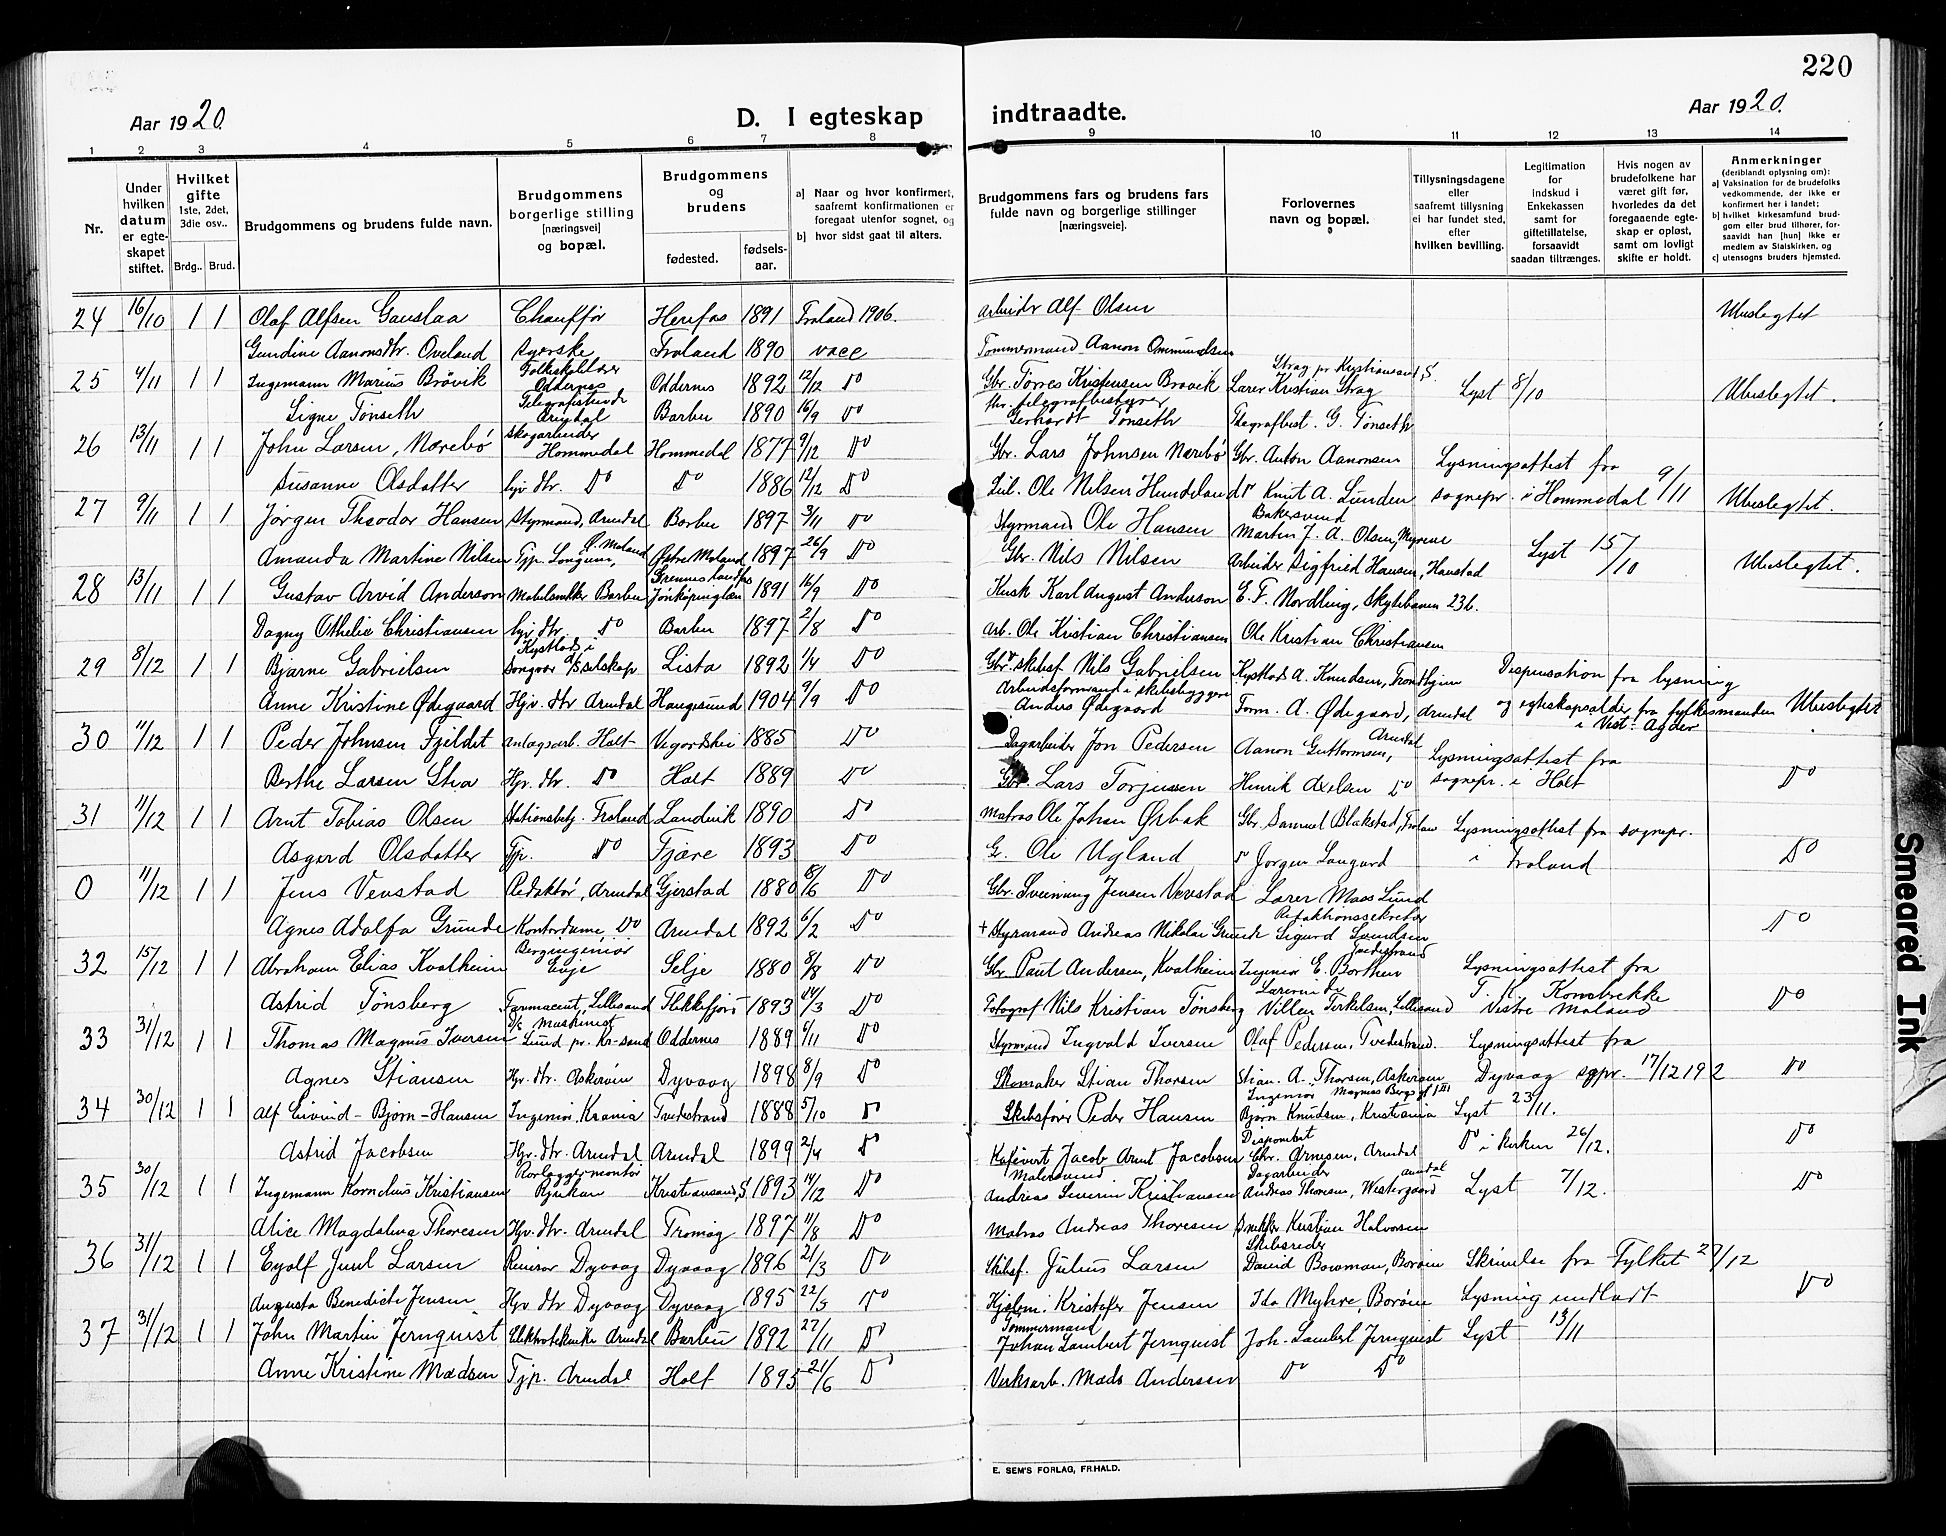 220
Aar 1920.
D. I egteskap indtraadte.
Aar 1920.
1 2 3 4 5 6 7 8 9 10 11 12 13 14
Nr.
Under hvilken datum er egteskapet stiftet.
Hvilket gifte 1ste, 2det, 3die osv..
Brdg.. Brud.
Brudgommens og brudens fulde navn.
Brudgommens borgerlige stilling [næringsvei] og bopæl.
Brudgommens og brudens
fødested. fødsels-aar.
a) Naar og hvor konfirmert, saafremt konfirmationen er foregaat utenfor sognet, og
b) hvor sidst gaat til alters.
Brudgommens fars og brudens fars fulde navn og borgerlige stillinger [næringsveie].
Forlovernes navn og bopæl.
Tillysningsdagene eller saafremt tillysning ei har fundet sted, efter hvilken bevilling.
Legitimation for Indskud i Enkekassen samt for giftetillatelse, forsaavidt saadan tiltrænges.
Hvis nogen av brudefolkene har været gift før, hvorledes da det foregaaende egteskap er opløst, samt om lovligt skifte er holdt.
Anmerkninger (deriblandt oplysning om):
a) Vaksination for de brudefolks vedkommende, der ikke er konfirmert her i landet;
b) hvilket kirkesamfund brudgom eller brud tilhører, forsaavidt han [hun] ikke er medlem av Statskirken, og
c) utensogns bruders hjemsted.
24 16/10 1 1 Olaf Alfsen Gauslaa Chauffør Herefos 1891 Froland 1906. Arbeider Alf Olsen Ubeslegtet
Gundine Aanonsdtr. Oveland Syerske Froland 1890 vacc Tømmermand Aanon Ommundsen
25 4/11 1 1 Ingemann Marius Brøvik Folkeskolelærer Oddernes Oddernes 1892 12/12 Do Gbr. Tørres Kristensen Brøvik Lærer Kristian Strag Strag pr Kristiansand S. Lyst 8/10 Ubeslegtet.
Signe Tønseth Telegrafistinde Arendal Barbu 1890 16/9 Do fhv. telegrafbestyrer Gerhardt Tønseth Telegrafbest. G. Tønseth
26 13/11 1 1 John Larsen, Nærebø Skogarbeider Hommedal Hommedal 1877 9/12 Do Gbr. Lars Johnsen Nærebø Gbr. Anton Aanonsen Lysningsattest fra
Susanne Olsdatter hjv dtr. Do Do 1886 12/12 Do Ole Nilsen Hundeland Do Knut A. Lunden sognepr. i Hommedal 9/11 Ubeslegtet.
27 9/11 1 1 Jørgen Theodor Hansen Styrmand, Arendal Barbu 1897 3/11 Do Styrmand Ole Hansen Bakersvend Martin J. A. Olsen, Myrene
Amanda Martine Nilsen Tjp. Longum, Ø. Moland Østre Moland 1897 26/9 Do Gbr. Nils Nilsen Arbeider Sigfried Hansen, Haustad Lyst 15/10 Ubeslegtet.
28 13/11 1 1 Gustav Arvid Anderson Møbelsnekker Barbu Jönköpingslän 1891 16/9 Do Kusk Karl August Anderson E. F. Nordling, Skytebanen 236.
Dagny Othelie Christiansen hjv. dtr. Do Barbu 1897 2/8 Do Arb. Ole Kristian Christiansen Ole Kristian Christiansen
29 8/12 1 1 Bjarne Gabrielsen Kystlods i Songvor d/s Selskap Lista 1892 1/4 Do Gbr. skibsf. Nils Gabrielsen Kystlods A. Knudsen, Trondhjem Dispensation fra lysning
Anne Kristine Ødegaard Hjv. dtr Arendal Haugesund 1904 9/9 Do Arbeidsformand i skibsbyggeri Anders Ødegaard Form. A. Ødegaard, Arendal og egteskapsalder fra fylkesmanden i Vest-Agder Ubeslegtet
30 11/12 1 1 Peder Johnsen Fjeldet Anlægsarb. Holt Vegardshei 1885 Do Dagarbeider Jon Pedersen Aanon Guttormsen, Arendal Lysningsattest fra
Berthe Larsen Stea Hjv. dtr. Do Holt 1889 Do Gbr. Lars Torjussen Henrik Axelsen Do sognepr. i Holt Do
31 11/12 1 1 Arnt Tobias Olsen Stationsbetj. Froland Landvik 1890 Do Matros Ole Johan Ørbæk Gbr. Samuel Blakstad, Frolan Lysningsattest fra sognepr.
Asgerd Olsdatter Tjp. Do Fjære 1893 Do G. Ole Ugland Do Jørgen Langerd i Froland Do
0 11/12 1 1 Jens Vevstad Redaktør, Arendal Gjerstad 1880 8/6 Do Gbr. Sveinung Jensen Vevstad Lærer Maas Lund
Agnes Adolfa Grunde Kontordame, Do Arendal 1892 6/2 Do + Styrmand Andreas Nikolai Grunde Redaktionssekretær Sigurd Svendsen Do
32 15/12 1 1 Abraham Elias Kvalheim Bergingeniør Evje Selje 1880 8/8 Do Gbr Paul Andersen, Kvalheim Ingeniør E. Borthen Tvedestrand Lysningsattest fra
Astrid Tønsberg Farmaceut, Lillesand Flekkefjord 1893 14/3 Do Fotograf Nils Kristian Tønsberg Lærerinde Villen Terkelsen, Lillesand T. K. Konsbrekke Vestre Moland Do
33 31/12 1 1 Thomas Magnus Iversen D/s Maskinist Lund pr. Kr-sand Oddernes 1889 6/11 Do Styrmand Ingvald Iversen Olaf Pedersen, Tvedestrand. Lysningsattest fra
Agnes Stiansen Hjv. dtr. Askerøen Dyvaag 1898 8/9 Do Skomaker Stian Thorsen Stian. A. Thorsen, Askerøen Dyvaag sgpr. 17/12 192 Do
34 30/12 1 1 Alf Eivind-Bjørn-Hansen Ingeniør, Krania Tvedestrand 1888 5/10 Do Skibsfører Peder Hansen Ingeniør Magnus Bergs gt III Bjørn Knudsen, Kristiania Lyst 23/11.
Astrid Jacobsen Hjv. dtr. Arendal Arendal 1899 2/4 Do Kafévert Jacob Arnt Jacobsen Disponent Chr. Arnesen, Arendal Do i kirken 26/12. Do
35 30/12 1 1 Ingemann Kornelius Kristiansen Rørlæggermontør Rjukan Kristiansand, S. 1893 14/12 Do Malersvend Andreas Severin Kristiansen Dagarbeider Andreas Thoresen, Westergaard Arendal Lyst 7/12. Do
Alice Magdalena Thoresen Hjv. dtr. Arendal Tromøy 1897 11/8 Do Matros Andreas Thoresen Snekker Kristian Halvorsen
36 31/12 1 1 Eyolf Juul Larsen Revisor Dyvaag Dyvaag 1896 21/3 Do Skibsf. Julius Larsen Skibsreder David Bowman, Borøen Skrivelse fra Fylket 27/12
Augusta Benedicte Jensen Hjv dtr Dyvaag Dyvaag 1895 22/5 Do Kjøbm. Kristofer Jensen Ida Myhre Borøen Lysning undladt Do
37 31/12 1 1 John Martin Jernquist Elektrotekniker Arendal Barbu 1892 27/11 Do Tømmermand Johan Lambert Jernquist Joh. Lambert Jernquist Lyst 13/11
Anne Kristine Madsen Tjp. Arendal Holt 1895 21/6 Do Verksarb. Mads Andersen Do Do
E. SEM'S FORLAG, FR.HALD.
Smeared Ink